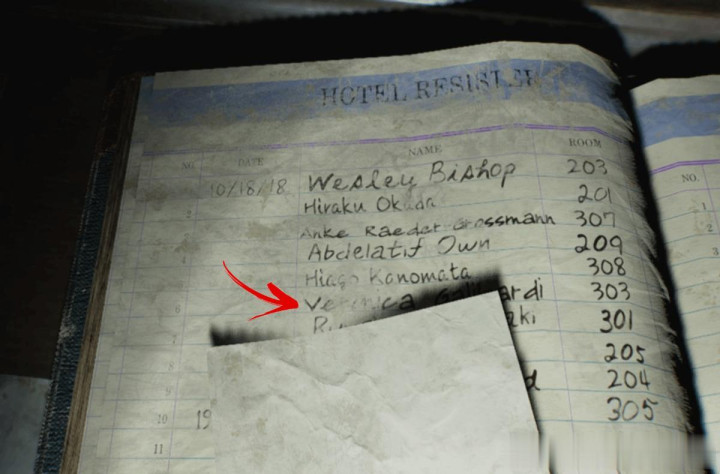 HOTEL
NO. DATE NAME ROOM
10/18/18 Wesley Bishop 203
2 Hiraku Okada 201
Anke Raeder Grossmann 307
4 Abdelatif Own 209
Hiago Kanomata 308
6 Veronica ardi 303
7 301
8 205
9 204
10 19 305
11
NO.
1
2
3